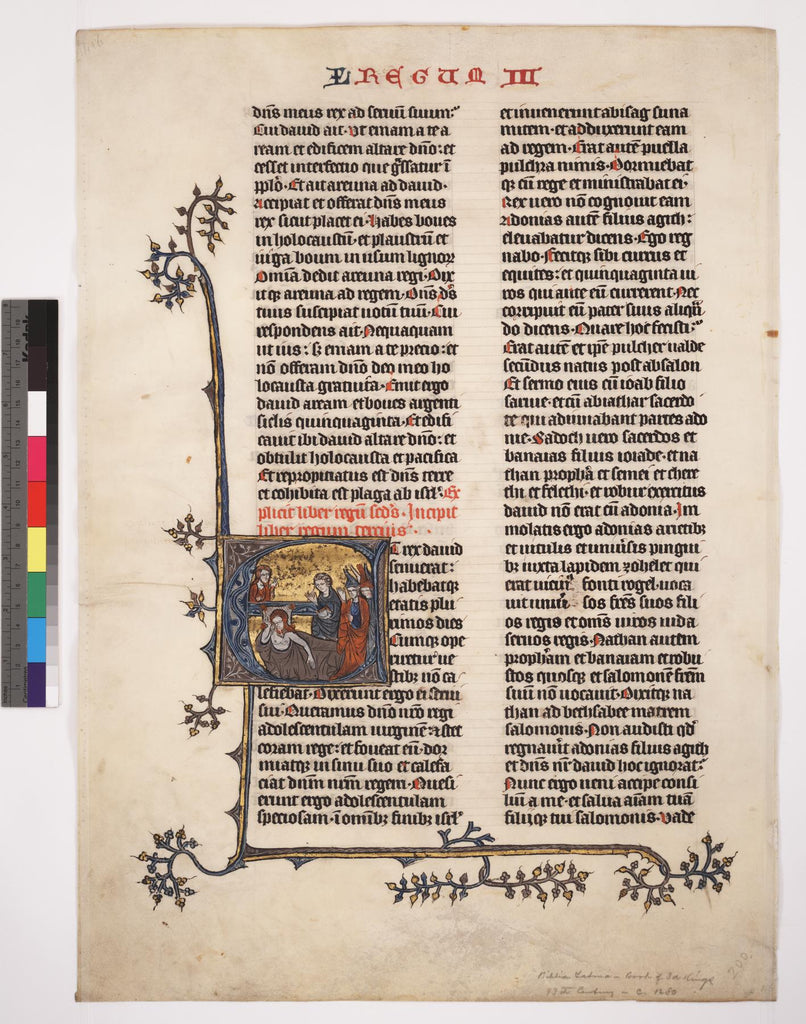 L REGUM III
dn̄s meus rex ad seruū suum:
Cui dauid ait. Vt emam a te a
ream et edificem altare dn̄o: et
cesset interfectio que g̃ssatur ī
pp̄lo. Et ait areuna ad dauid.
Accipiat et offerat dn̄s meus
rex sicut placet ei. Habes boues
in holocaustū. et plaustrū et
iuga boum in usum lignoꝝ
Omīa dedit areuna regi. Dix
itqꝫ areuna ad regem. Dn̄s d̄s
tuus suscipiat uotū tuū. Cui
respondens ait. Nequaquam
ut uis: sꝫ emam a te precio: et
nō offeram dn̄o deo meo ho
locausta gratuita. Emit ergo
dauid aream et boues argenti
siclis quinquaginta. Et edifi
cauit ibi dauid altare dn̄o: et
obtulit holocausta et pacifica
Et repropiciatus est dn̄s terre
et cohibita est plaga ab isrl̄. Ex
plicit liber regū scd̄s. Incipit
liber regum tercius.
T rex dauid
senuerat:
habebatqꝫ
etatis plu
rimos dies
Cumqꝫ ope
riretur ue
stibꝫ nō ca
lefiebat. Dixerunt ergo ei serui
sui. Queramus dn̄o nr̄o regi
adolescentulam uirginē: et stet
coram rege: et foueat eū. dor
miatqꝫ in sinu suo et calefa
ciat dnm̄ nr̄m regem. Quesi
erunt ergo adolescentulam
speciosam. ī omībꝫ finibꝫ isrl̄
et inuenerunt abisag suna
mitem. et adduxerunt eam
ad regem. Erat autē puella
pulchra nimis. Dormiebat
qꝫ cū rege et ministrabat ei.
Rex uero nō cognouit eam
Adonias autē filius agith:
eleuabatur dicens. Ego reg
nabo. Fecitqꝫ sibi currus et
equites: et quinquaginta ui
ros qui ante eū currerent. Nec
corripuit eū pater suus aliqn̄
do dicens. Quare hoc fecisti:
Erat autē et ip̄e pulcher ualde
secūdus natus post absalon
Et sermo eius cū ioab filio
saruie. et cū abiathar sacerdo
te qui adiuuabant partes ado
nie. Sadoch uero sacerdos et
banaias filius ioiade. et na
than prophā et semei et chere
thi et felethi. et robur exercitus
dauid nō erat cū adonia. Im
molatis ergo adonias arietibꝫ
et uitulis et uniuīsis pingui
bꝫ iuxta lapidem zohelet qui
erat uicin⁹ fonti rogel. uoca
uit uniu̅sos fr̄es suos fili
os regis et om̄s uiros iuda
seruos regis. Nathan autem
prophām et banaiam et robu
stos quosqꝫ et salomonē frēm
suū nō uocauit. Dixitqꝫ na
than ad bethsabee matrem
salomonis. Non audisti qd̄
regnauīt adonias filius agith
et dn̄s nr̄ dauid hoc ignorat:
Nunc ergo ueni accipe consi
liū a me. et salua aīam tuā
filiiqꝫ tui salomonis. Vade
Biblia Latina – Book of 3d Kings
13th Century – c. 1280
200.
Kodak